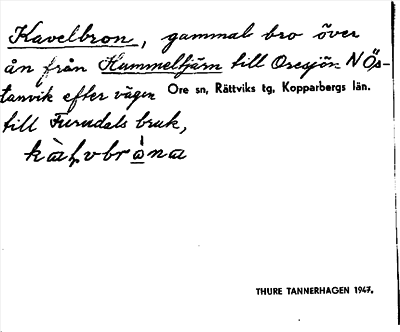 Kavelbron, gammal bro över
ån från Hammeltjärn till Oresjön N Ös-
tanvik efter vägen Ore sn, Rättviks tg, Kopparbergs län.
till Furudals bruk,
THURE TANNERHAGEN 1947.